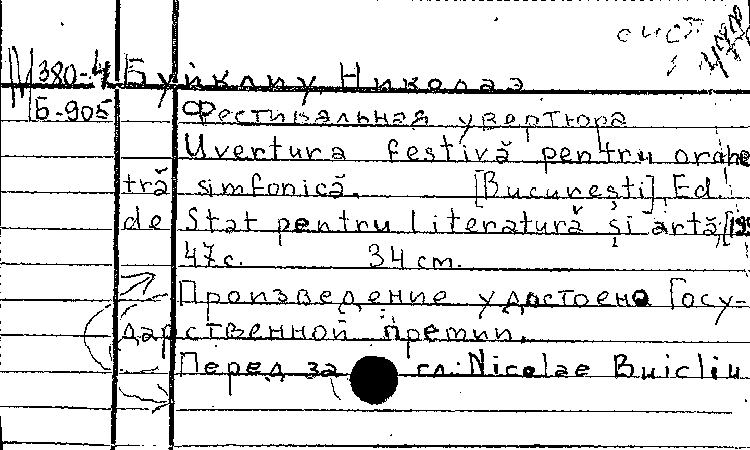 сист
М 380-4 Буйклиу Николаэ
Б-905 Фестивальная увертюра
Uvertura festivă pentru orches
tră simfonică. [București], Ed.
de Stat pentru literatură și artă,
47 с. 34 cm.
Произведение удостоено Госу-
дарственной премии.
Перед загл: Nicolae Buicliu